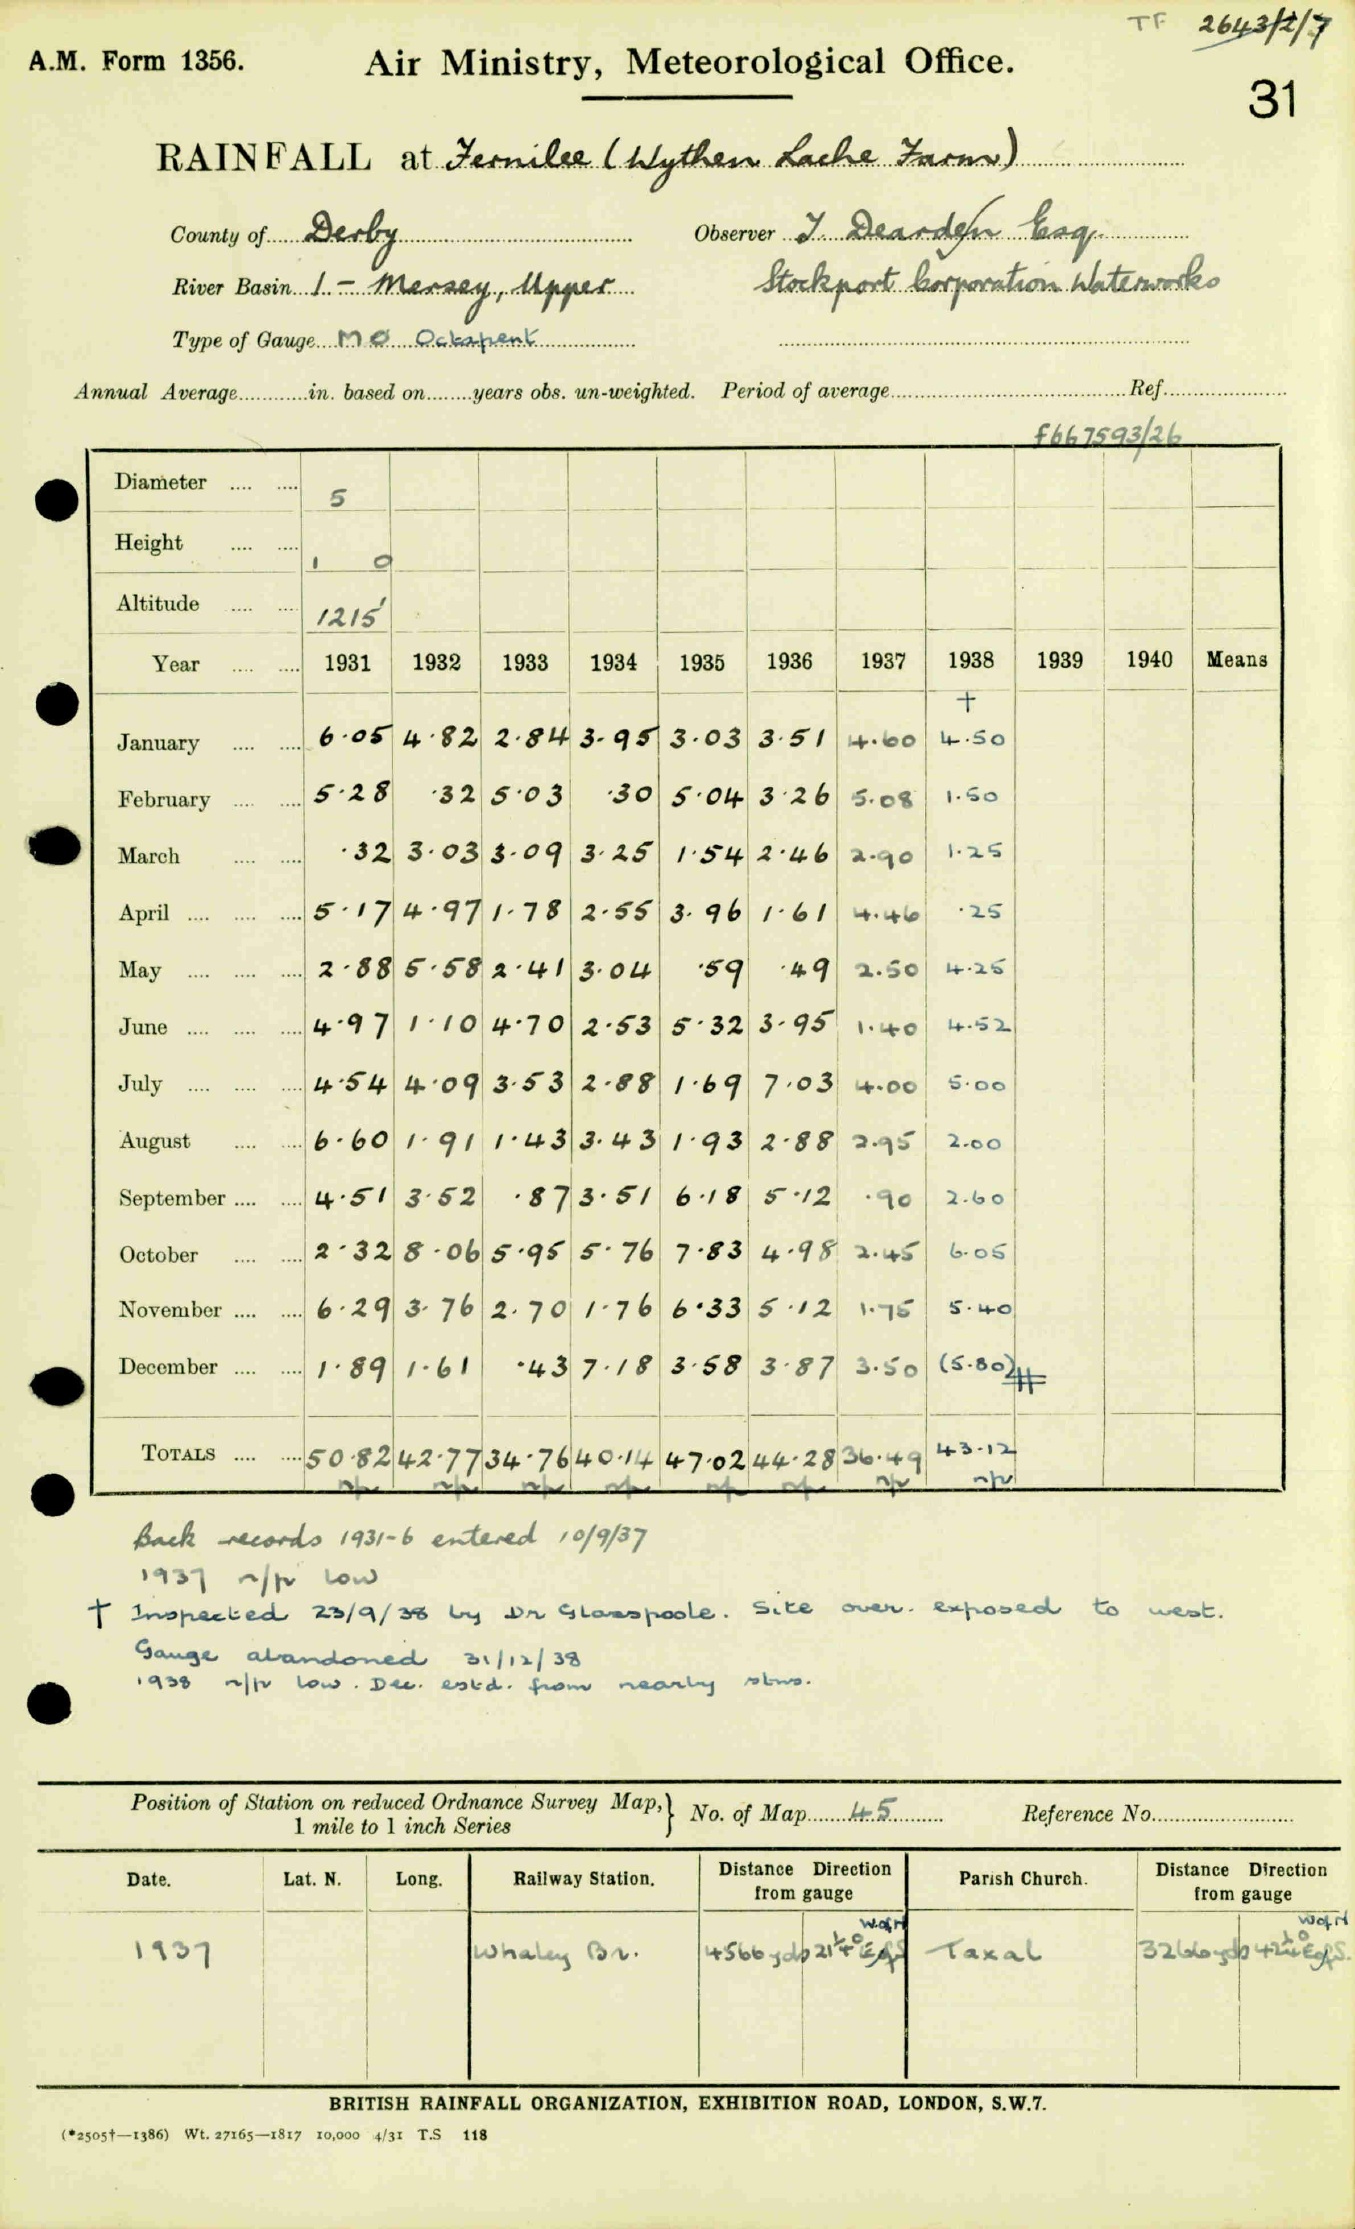 TF 2643/2/7
A.M. Form 1356. Air Ministry, Meteorological Office.
31
RAINFALL at Fernilee (Wythen Lache Farm)
County of Derby Observer T. Dearden Esq.
River Basin 1 - Mersey, Upper Stockport Corporation Waterworks
Type of Gauge MO Octapent
Annual Average in. based on years obs. un-weighted. Period of average Ref.
f667593/26
Diameter 5
Height 1 0
Altitude 1215'
Year 1931 1932 1933 1934 1935 1936 1937 1938 1939 1940 Means
†
January 6.05 4.82 2.84 3.95 3.03 3.51 4.60 4.50
February 5.28 .32 5.03 .30 5.04 3.26 5.08 1.50
March .32 3.03 3.09 3.25 1.54 2.46 2.90 1.25
April 5.17 4.97 1.78 2.55 3.96 1.61 4.46 .25
May 2.88 5.58 2.41 3.04 .59 .49 2.50 4.25
June 4.97 1.10 4.70 2.53 5.32 3.95 1.40 4.52
July 4.54 4.09 3.53 2.88 1.69 7.03 4.00 5.00
August 6.60 1.91 1.43 3.43 1.93 2.88 2.95 2.00
September 4.51 3.52 .87 3.51 6.18 5.12 .90 2.60
October 2.32 8.06 5.95 5.76 7.83 4.98 2.45 6.05
November 6.29 3.76 2.70 1.76 6.33 5.12 1.75 5.40
December 1.89 1.61 .43 7.18 3.58 3.87 3.50 (5.80)
TOTALS 50.82 42.77 34.76 40.14 47.02 44.28 36.49 43.12
n/p n/p n/p n/p n/p n/p n/p n/p
Back records 1931-6 entered 10/9/37
1937 n/p low
† Inspected 23/9/38 by Dr Glasspoole. Site over-exposed to west.
Gauge abandoned 31/12/38
1938 n/p low. Dec. estd. from nearby stns.
Position of Station on reduced Ordnance Survey Map, } No. of Map 45 Reference No.
1 mile to 1 inch Series
Date. Lat. N. Long. Railway Station. Distance Direction from gauge Parish Church. Distance Direction from gauge
W of N W of N
1937 Whaley Br. 4566 yds 21¼° E of S Taxal 3266 yds 42¼° E of S.
BRITISH RAINFALL ORGANIZATION, EXHIBITION ROAD, LONDON, S.W.7.
(*2505†—1386) Wt. 27165—1817 10,000 4/31 T.S 118